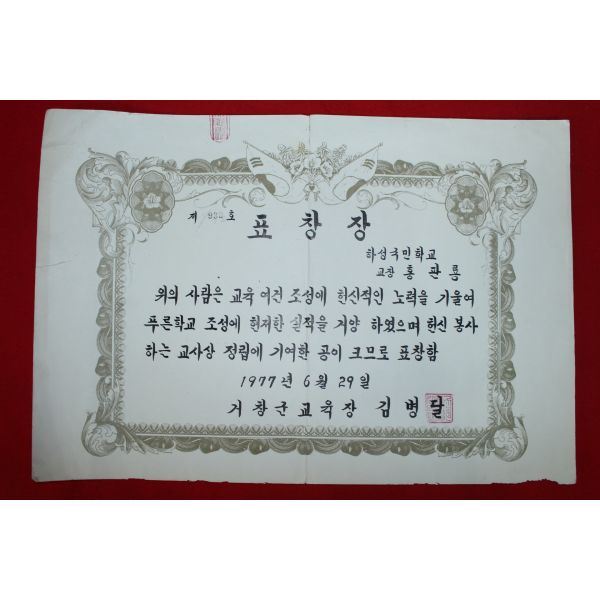 제 932 호
표창장
하성국민학교
교장 홍관룡
위의 사람은 교육 여건 조성에 헌신적인 노력을 기울여
푸른학교 조성에 현저한 실적을 거양 하였으며 헌신 봉사
하는 교사상 정립에 기여한 공이 크므로 표창함
1977년 6월 29일
거창군교육장 김병달